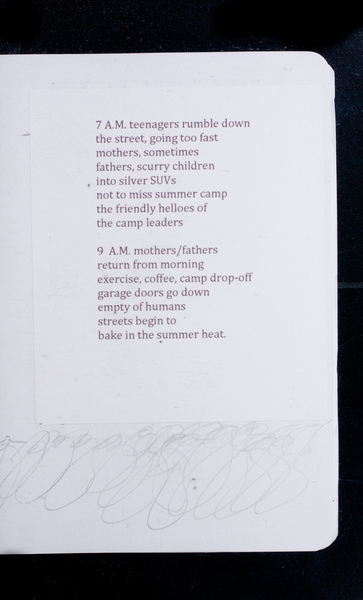 7 A.M. teenagers rumble down
the street, going too fast
mothers, sometimes
fathers, scurry children
into silver SUVs
not to miss summer camp
the friendly helloes of
the camp leaders
9 A.M. mothers/fathers
return from morning
exercise, coffee, camp drop-off
garage doors go down
empty of humans
streets begin to
bake in the summer heat.